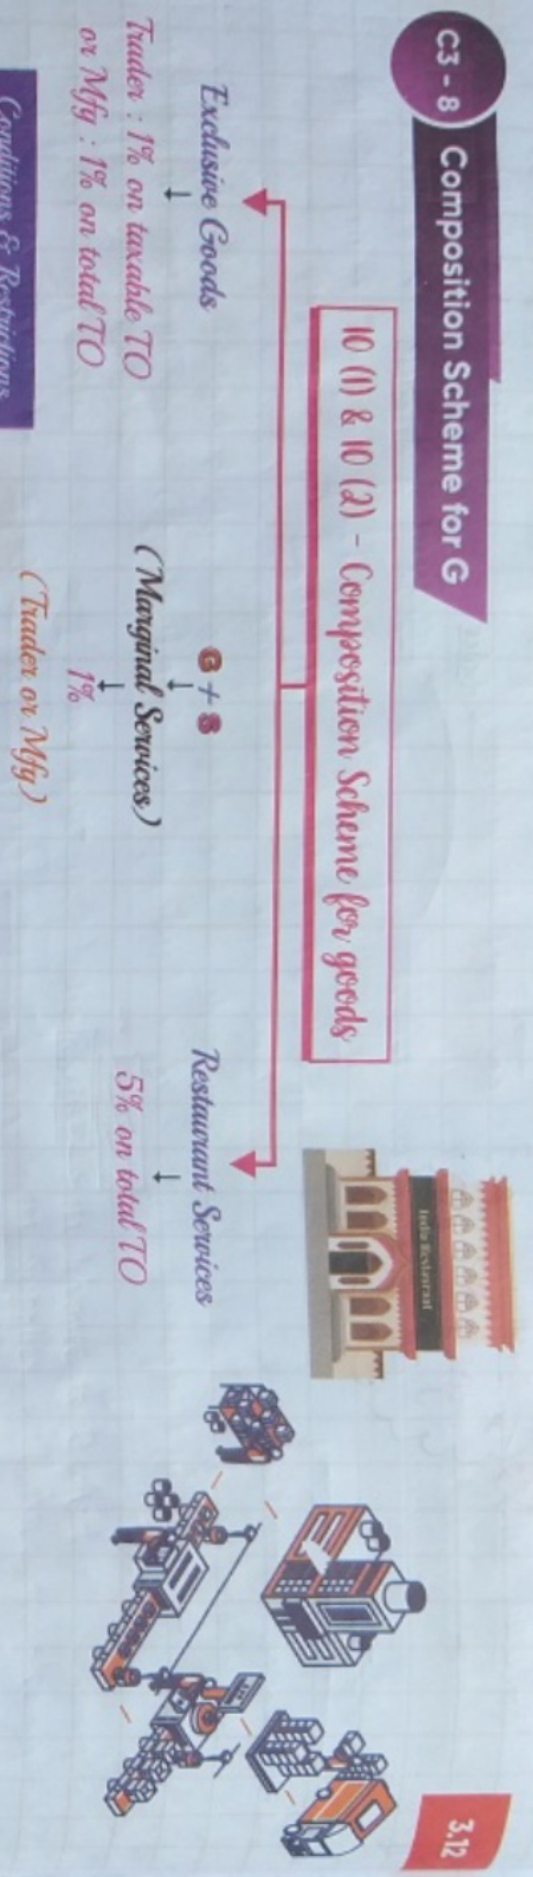 C3 - 8 Composition Scheme for G
3.12
10 (1) & 10 (2) - Composition Scheme for goods
India Restaurant
Exclusive Goods
Trader : 1% on taxable TO
or Mfg : 1% on total TO
G + S
(Marginal Services)
1%
(Trader or Mfg)
Restaurant Services
5% on total TO
Conditions & Restrictions